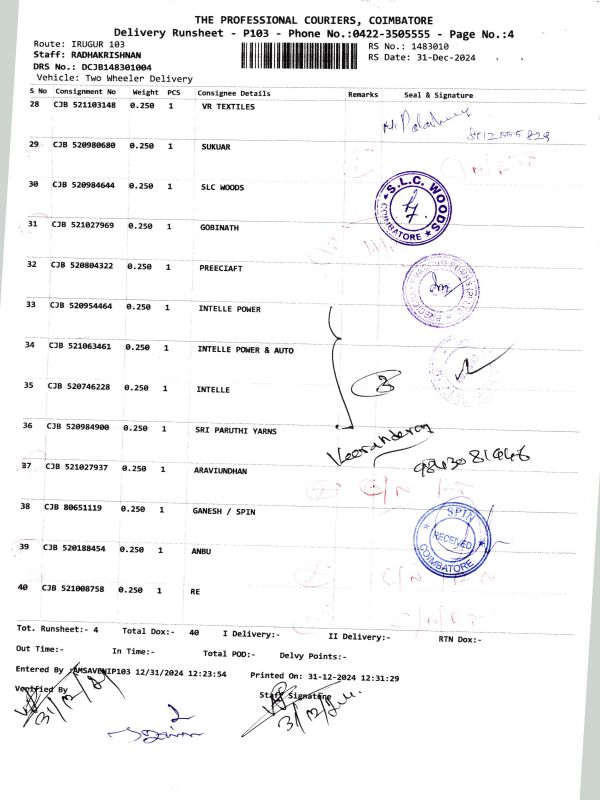 THE PROFESSIONAL COURIERS, COIMBATORE
Delivery Runsheet - P103 - Phone No.:0422-3505555 - Page No.:4
Route: IRUGUR 103
RS No.: 1483010
Staff: RADHAKRISHNAN
RS Date: 31-Dec-2024
DRS No.: DCJB148301004
Vehicle: Two Wheeler Delivery
S No Consignment No Weight PCS Consignee Details Remarks Seal & Signature
28 CJB 521103148 0.250 1 VR TEXTILES
29 CJB 520980680 0.250 1 SUKUAR
30 CJB 520984644 0.250 1 SLC WOODS
S.L.C. WOODS
COIMBATORE
31 CJB 521027969 0.250 1 GOBINATH
32 CJB 520804322 0.250 1 PREECIAFT
33 CJB 520954464 0.250 1 INTELLE POWER
34 CJB 521063461 0.250 1 INTELLE POWER & AUTO
3
35 CJB 520746228 0.250 1 INTELLE
36 CJB 520984900 0.250 1 SRI PARUTHI YARNS
37 CJB 521027937 0.250 1 ARAVIUNDHAN
C/N
38 CJB 80651119 0.250 1 GANESH / SPIN
SPIN
RECEIVED
COIMBATORE
39 CJB 520188454 0.250 1 ANBU
C/N
40 CJB 521008758 0.250 1 RE
Tot. Runsheet:- 4 Total Dox:- 40 I Delivery:- II Delivery:- RTN Dox:-
Out Time:- In Time:- Total POD:- Delvy Points:-
Entered By :AMSAVENIP103 12/31/2024 12:23:54 Printed On: 31-12-2024 12:31:29
Verified By Staff Signature